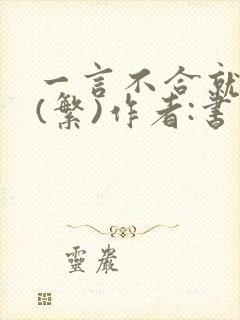 一言不合就
(繁)作者:書
靈巖